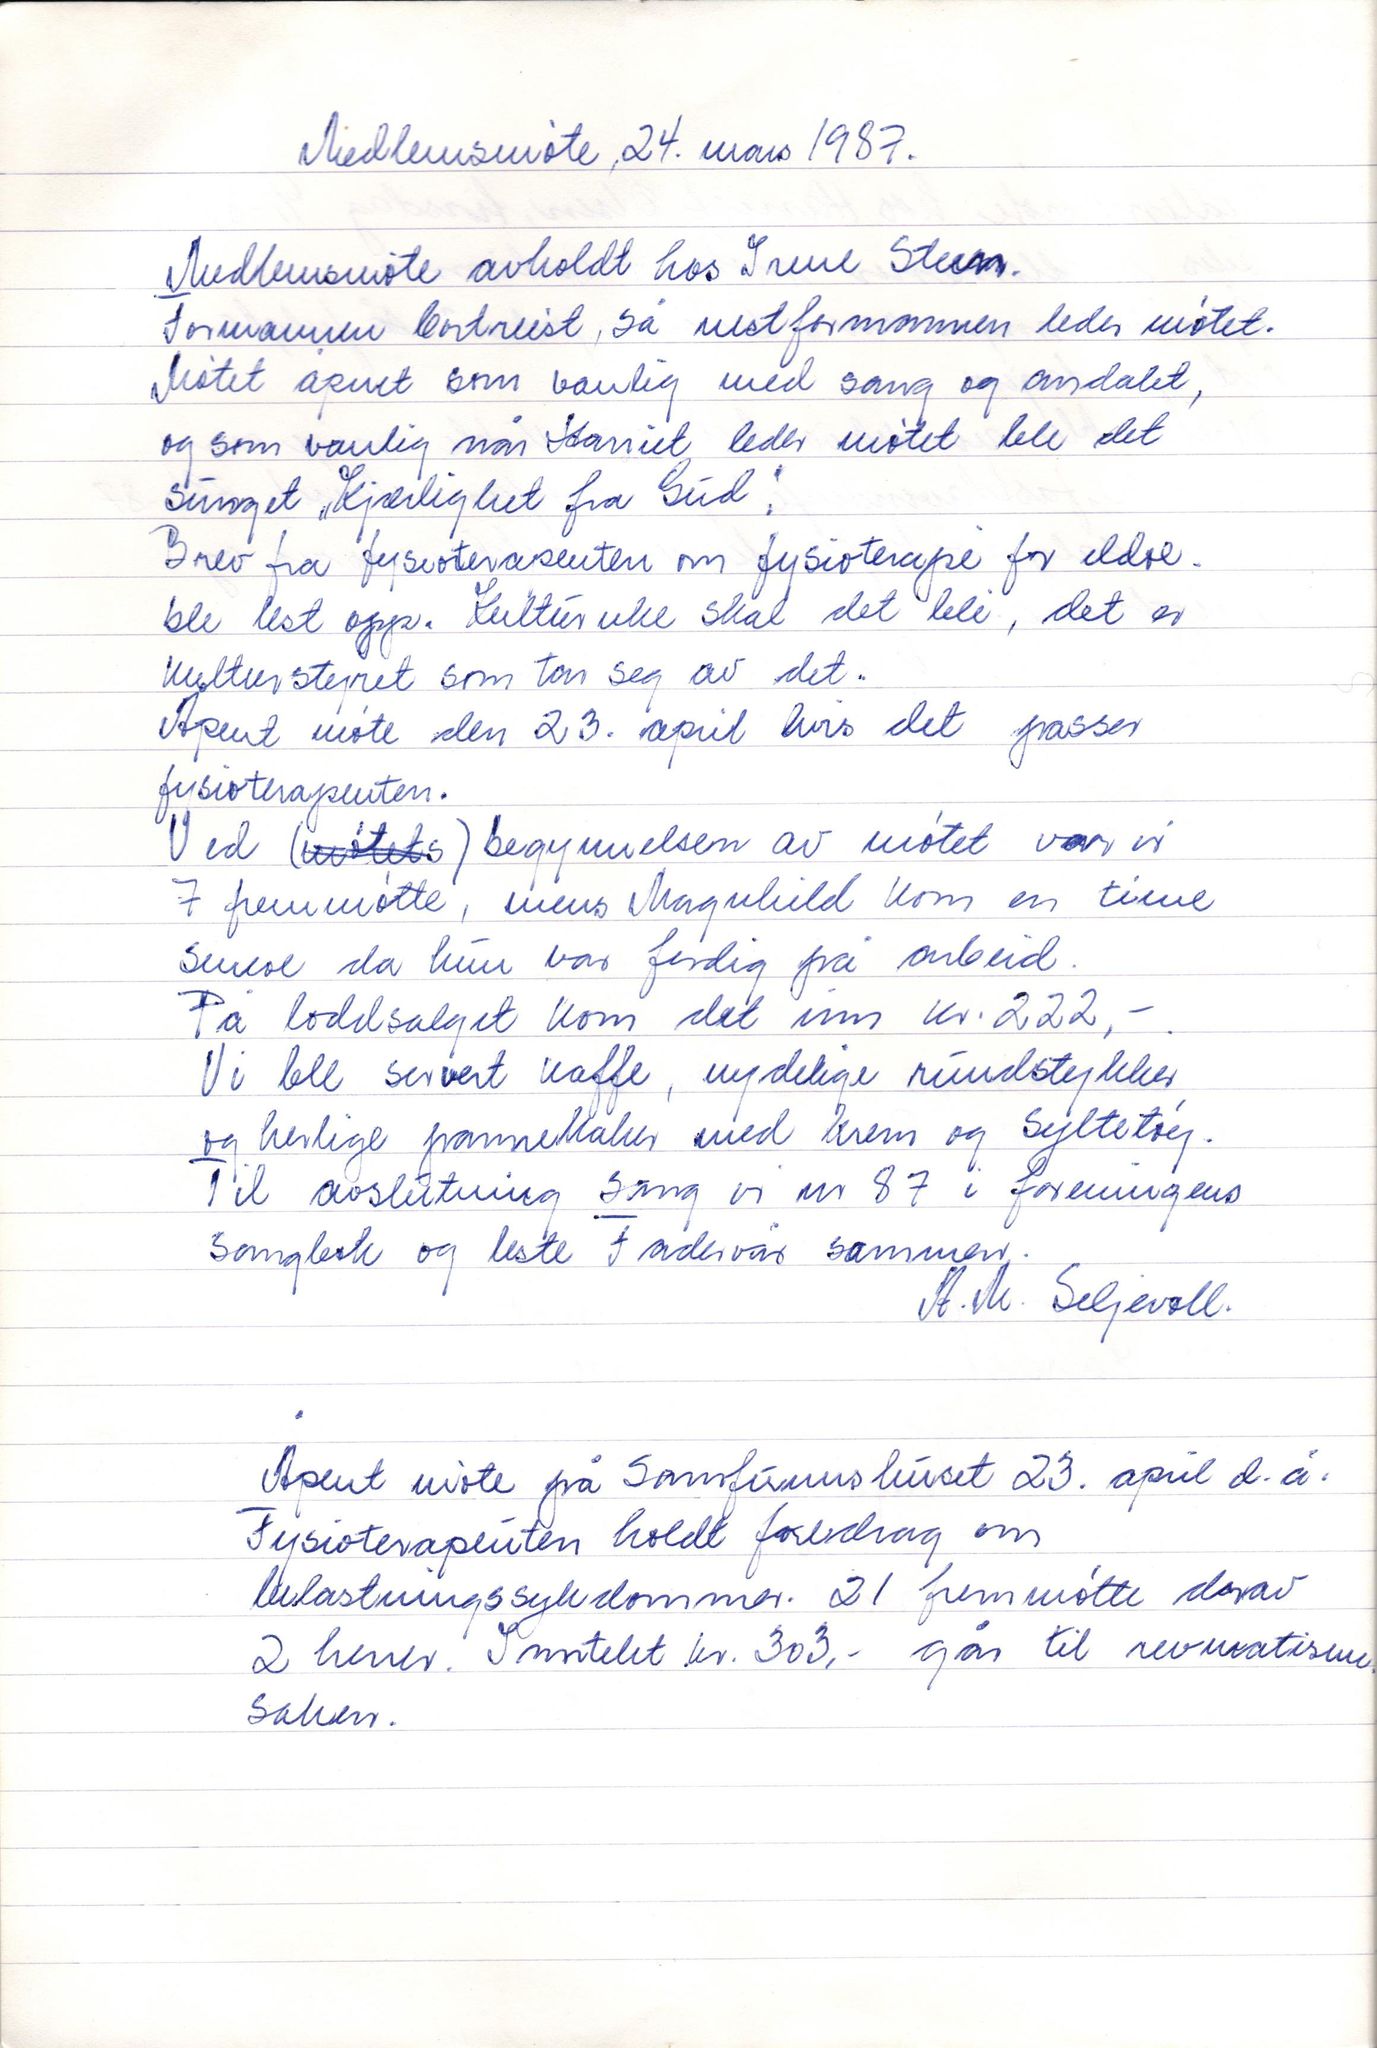 Medlemsmøte, 24. mars 1987.
Medlemsmøte avholdt hos Irene Steen.
Formannen bortreist, så nestformannen leder møtet.
Møtet åpnet som vanlig med sang og andakt,
og som vanlig når Harriet leder møtet ble det
sunget „Kjærlighet fra Gud".
Brev fra fysioterapeuten om fysioterapi for eldre.
ble lest opp. Kulturuke skal det bli, det er
kulturstyret som tar seg av det.
Åpent møte den 23. april hvis det passer
fysioterapeuten.
Ved (møtets) begynnelsen av møtet var vi
7 fremmøtte, mens Magnhild kom en time
senere da hun var ferdig på arbeid.
På loddsalget kom det inn kr. 222,-.
Vi ble servert kaffe, nydelige rundstykker
og herlige pannekaker med krem og syltetøy.
Til avslutning sang vi nr 87 i foreningens
sangbok og leste Fadervår sammen.
A. M. Seljevoll.
Åpent møte på Samfunnshuset 23. april d. å.
Fysioterapeuten holdt foredrag om
belastningssykdommer. 21 fremmøtte derav
2 herrer. Inntekt kr. 303,- går til revmatisme
saken.